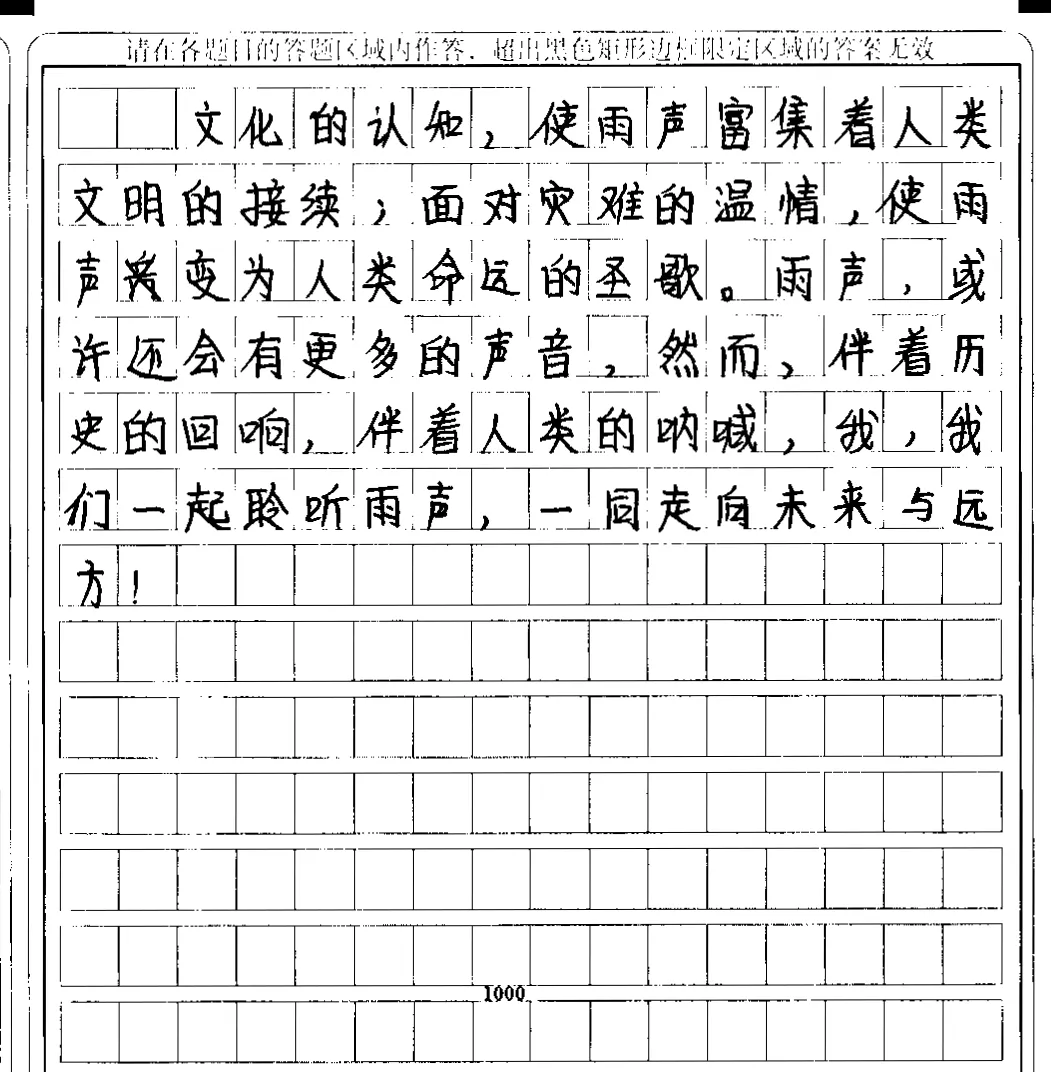 请在各题目的答题区域内作答，超出黑色矩形边框限定区域的答案无效
文化的认知，使雨声富集着人类
文明的接续；面对灾难的温情，使雨
声变为人类命运的圣歌。雨声，或
许还会有更多的声音，然而，伴着历
史的回响，伴着人类的呐喊，我，我
们一起聆听雨声，一同走向未来与远
方！
1000